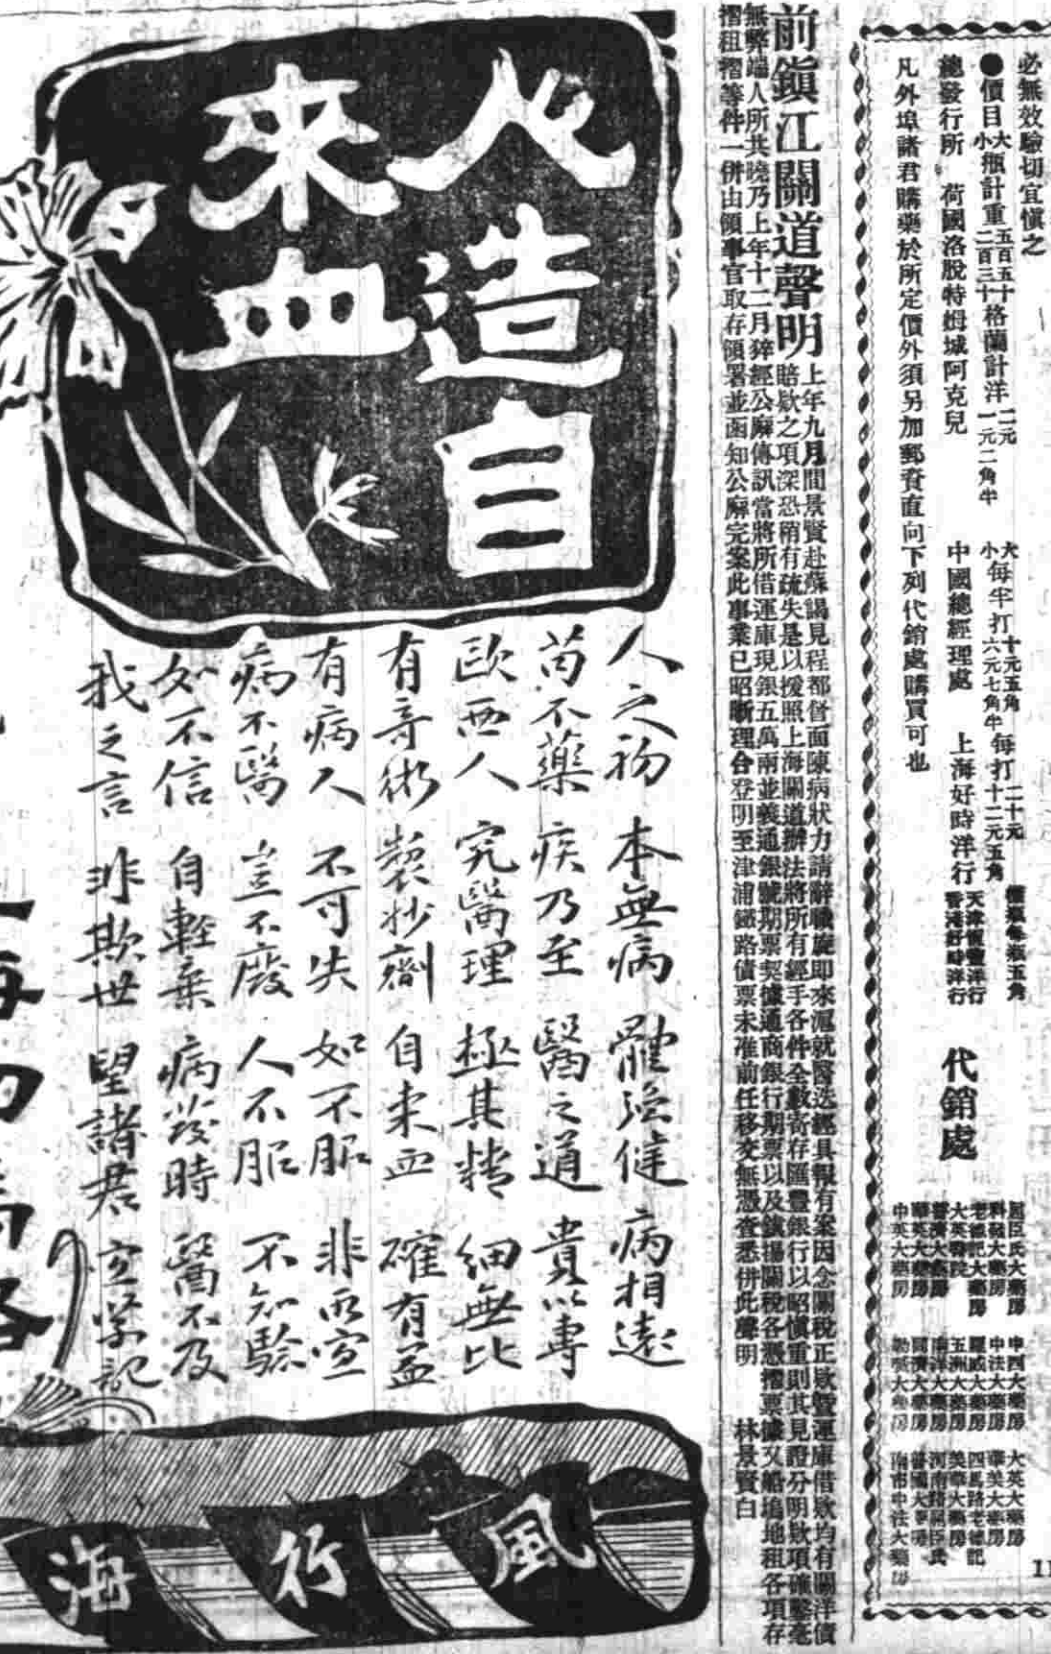 必無效驗切宜慎之
●價目 大瓶計重五百五十格蘭計洋二元 大每半打十元五角 每打二十元
小瓶計重二百三十格蘭計洋一元二角半 小每半打六元七角半 每打十二元五角
總發行所 荷國洛脫特姆城阿克兒 中國總經理處 上海好時洋行
凡外埠諸君購藥於所定價外須另加郵資直向下列代銷處購買可也
代銷處
屈臣氏大藥房
科發大藥房
老德記大藥房
大英醫院
中英大藥房
中西大藥房
中法大藥房
羅威大藥房
五洲大藥房
南洋大藥房
大英大藥房
華美大藥房
四馬路老德記
美華大藥房
河南路屈臣氏
南市中法大藥房
前鎮江關道聲明
上年九月間景賢赴蘇謁見程都督面陳病狀力請辭職旋即來滬就醫迭經具報有案因念關稅正欵暨運庫借欵均有關洋債
賠欵之項深恐稍有疏失是以援照上海關道辦法將所有經手各件全數寄存匯豐銀行以昭慎重則其見證分明欵項確鑿毫
無弊端人所共曉乃上年十二月猝經公廨傳訊當將所借運庫現銀五萬兩並義通銀號期票契據通商銀行期票以及鎮揚關稅各憑摺票據又船塢地租各項存
摺租摺等件一併由領事官取存領署並函知公廨完案此事業已昭晰理合登明至津浦鐵路債票未准前任移交無憑查悉併此聲明 林景賢白
人造自
來血
人之初 本無病 體強健 病相遠
苟不藥 疾乃至 醫之道 貴以專
歐西人 究醫理 極其精 細無比
有奇術 製妙劑 自來血 確有益
有病人 不可失 如不服 非所宜
病不醫 豈不廢 人不服 不知驗
如不信 自輕棄 病發時 醫不及
我之言 非欺世 望諸君 宜學記
風行海
11